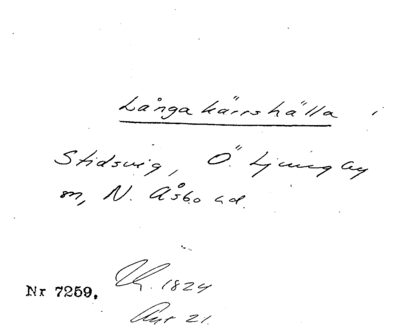 Långakärrshälla i
Stidsvig, Ö. Ljungby
m, N. Åsbo hd.
Nr 7259. Th. 1824
Ant 21.